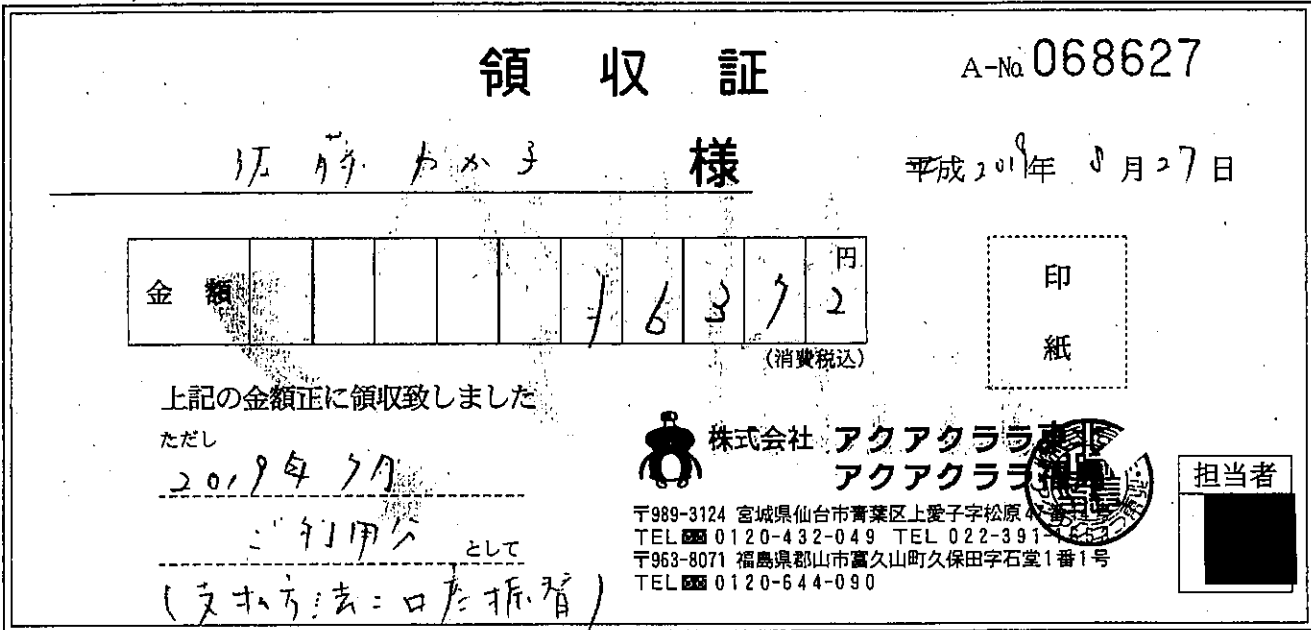 領収証
A-No.068627
佐藤わか子 様
平成2019年8月27日
金額 16372円
(消費税込)
印紙
上記の金額正に領収致しました
ただし
2019年7月
ご利用分 として
(支払方法:口座振替)
株式会社 アクアクララ東北
アクアクララ福島
〒989-3124 宮城県仙台市青葉区上愛子字松原47番
TEL 0120-432-049 TEL 022-391-1653
〒963-8071 福島県郡山市富久山町久保田字石堂1番1号
TEL 0120-644-090
担当者